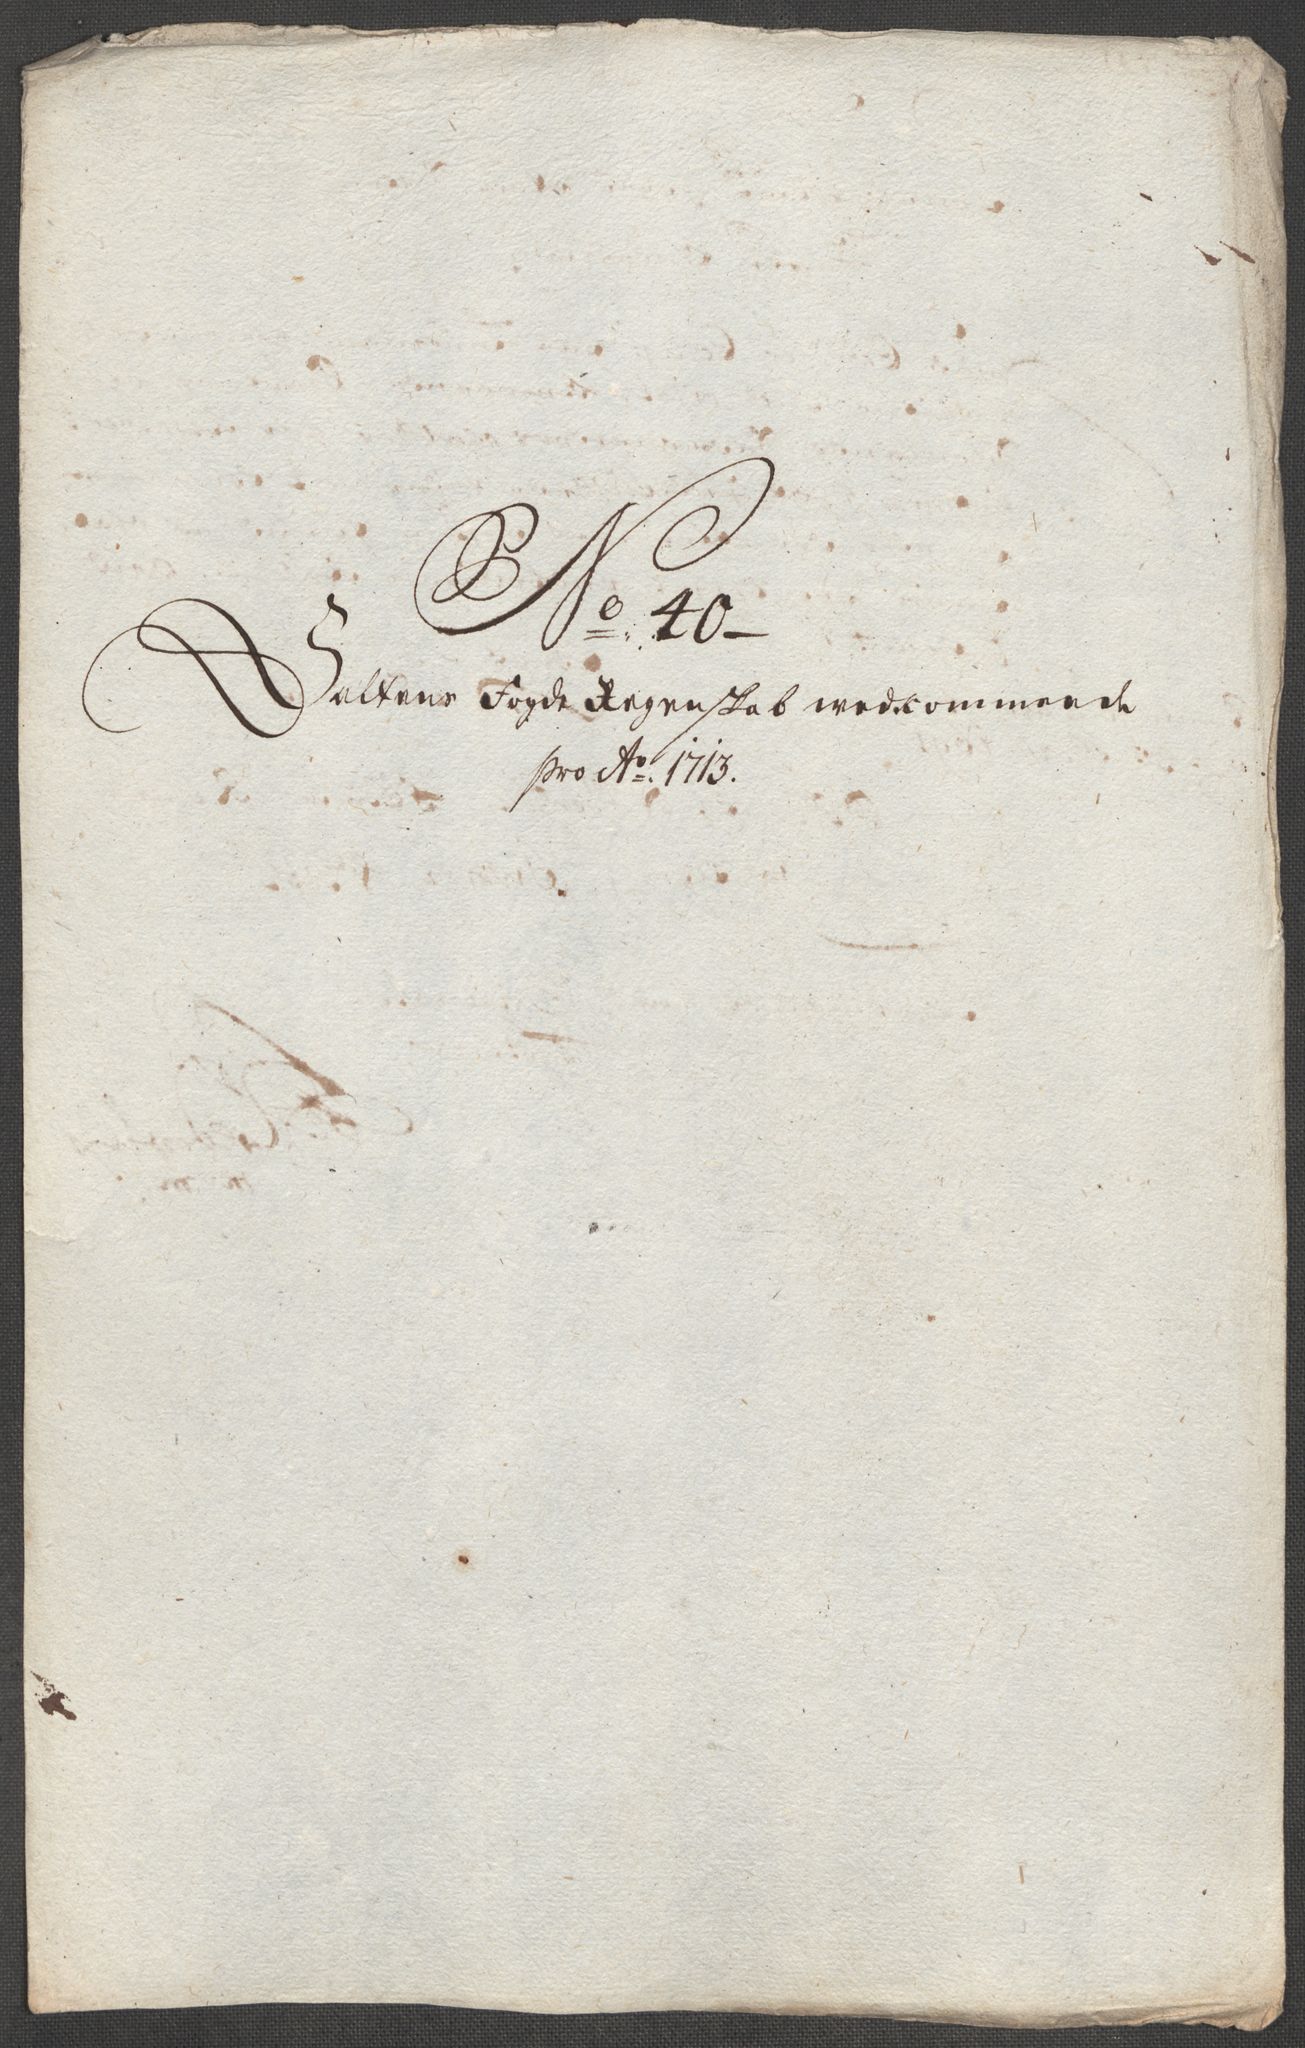 No. 40
Saltens Fogde Regenskab wedkommende
pro Ao. 1713.